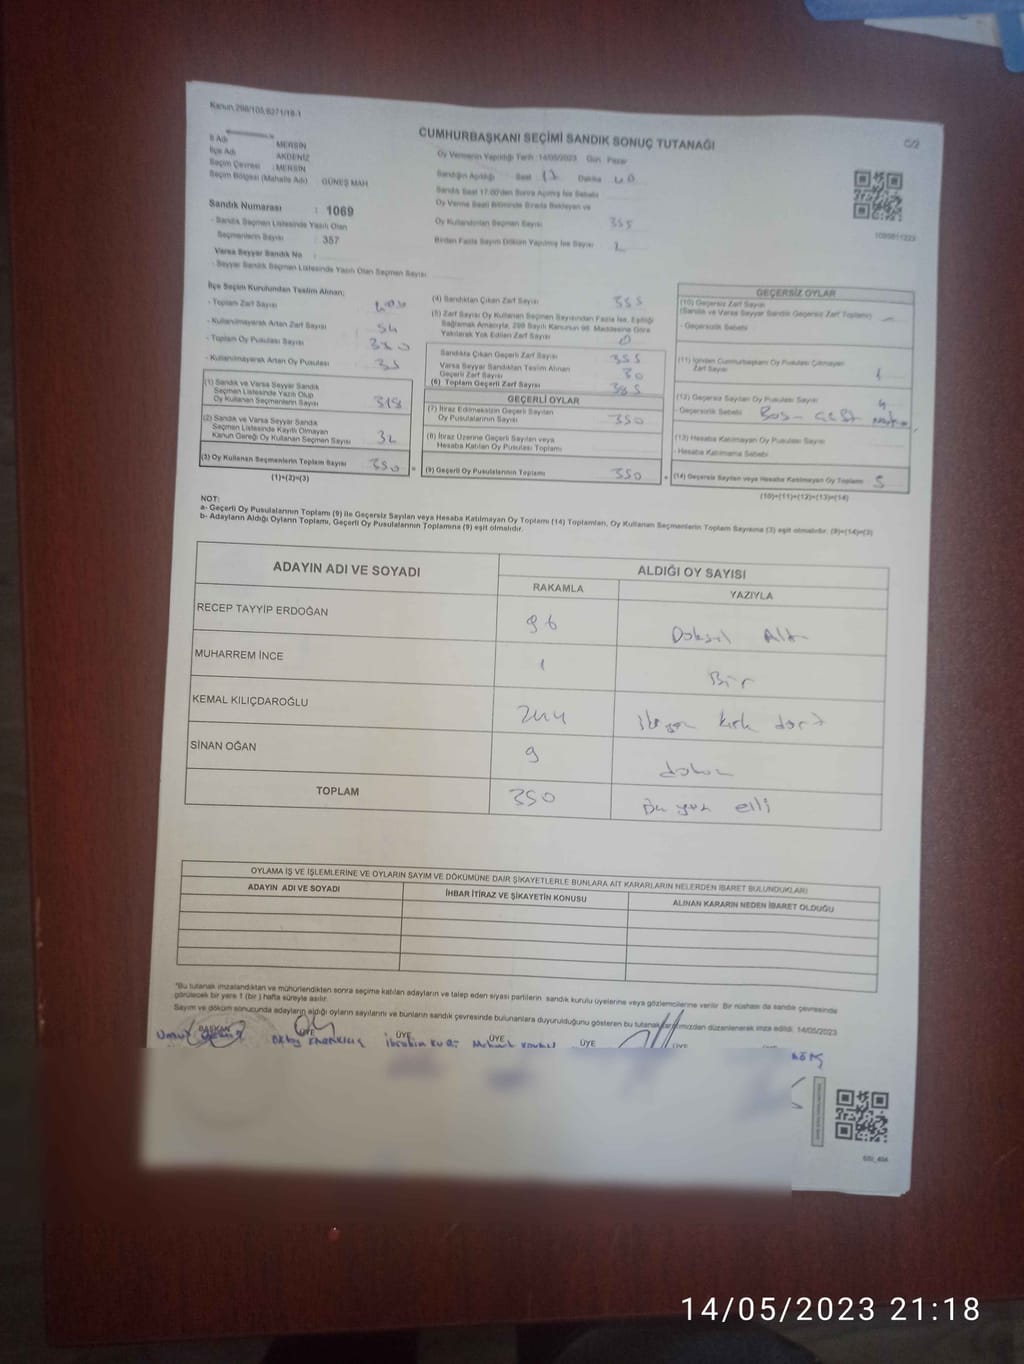 Kanun,298/105,6271/18-1
CUMHURBAŞKANI SEÇİMİ SANDIK SONUÇ TUTANAĞI
C/2
İl Adı MERSİN
İlçe Adı AKDENİZ
Seçim Çevresi : MERSİN
Seçim Bölgesi (Mahalle Adı) GÜNEŞ MAH
Sandık Numarası : 1069
- Sandık Seçmen Listesinde Yazılı Olan
Seçmenlerin Sayısı : 357
Varsa Seyyar Sandık No
- Seyyar Sandık Seçmen Listesinde Yazılı Olan Seçmen Sayısı
Oy Vermenin Yapıldığı Tarih :14/05/2023 Gün : Pazar
Sandığın Açıldığı Saat 17 Dakika 40
Sandık Saat 17:00'den Sonra Açılmış İse Sebebi
Oy Verme Saati Bitiminde Sırada Bekleyen ve
Oy Kullandırılan Seçmen Sayısı 355
Birden Fazla Sayım Döküm Yapılmış İse Sayısı
İlçe Seçim Kurulundan Teslim Alınan;
- Toplam Zarf Sayısı 400
- Kullanılmayarak Artan Zarf Sayısı 54
- Toplam Oy Pusulası Sayısı 380
- Kullanılmayarak Artan Oy Pusulası 35
(1) Sandık ve Varsa Seyyar Sandık
Seçmen Listesinde Yazılı Olup
Oy Kullanan Seçmenlerin Sayısı 318
(2) Sandık ve Varsa Seyyar Sandık
Seçmen Listesinde Kayıtlı Olmayan
Kanun Gereği Oy Kullanan Seçmen Sayısı 32
(3) Oy Kullanan Seçmenlerin Toplam Sayısı 350
(1)+(2)=(3)
(4) Sandıktan Çıkan Zarf Sayısı 355
(5) Zarf Sayısı Oy Kullanan Seçmen Sayısından Fazla İse, Eşitliği
Sağlamak Amacıyla, 298 Sayılı Kanunun 98. Maddesine Göre
Yakılarak Yok Edilen Zarf Sayısı 0
Sandıkta Çıkan Geçerli Zarf Sayısı 355
Varsa Seyyar Sandıktan Teslim Alınan
Geçerli Zarf Sayısı 30
(6) Toplam Geçerli Zarf Sayısı 385
GEÇERLİ OYLAR
(7) İtiraz Edilmeksizin Geçerli Sayılan
Oy Pusulalarının Sayısı 350
(8) İtiraz Üzerine Geçerli Sayılan veya
Hesaba Katılan Oy Pusulası Toplamı
(9) Geçerli Oy Pusulalarının Toplamı 350
1099811223
GEÇERSİZ OYLAR
(10) Geçersiz Zarf Sayısı
(Sandık ve Varsa Seyyar Sandık Geçersiz Zarf Toplamı)
- Geçersizlik Sebebi
(11) İçinden Cumhurbaşkanı Oy Pusulası Çıkmayan
Zarf Sayısı 1
(12) Geçersiz Sayılan Oy Pusulası Sayısı 4
- Geçersizlik Sebebi Boş
(13) Hesaba Katılmayan Oy Pusulası Sayısı
- Hesaba Katılmama Sebebi
(14) Geçersiz Sayılan veya Hesaba Katılmayan Oy Toplamı 5
(10)+(11)+(12)+(13)=(14)
NOT:
a- Geçerli Oy Pusulalarının Toplamı (9) ile Geçersiz Sayılan veya Hesaba Katılmayan Oy Toplamı (14) Toplamları, Oy Kullanan Seçmenlerin Toplam Sayısına (3) eşit olmalıdır. (9)+(14)=(3)
b- Adayların Aldığı Oyların Toplamı, Geçerli Oy Pusulalarının Toplamına (9) eşit olmalıdır.
ADAYIN ADI VE SOYADI ALDIĞI OY SAYISI
RAKAMLA YAZIYLA
RECEP TAYYİP ERDOĞAN 96 Doksan Altı
MUHARREM İNCE 1 Bir
KEMAL KILIÇDAROĞLU 244 ikiyüz kırk dört
SİNAN OĞAN 9 dokuz
TOPLAM 350 Üç yüz elli
OYLAMA İŞ VE İŞLEMLERİNE VE OYLARIN SAYIM VE DÖKÜMÜNE DAİR ŞİKAYETLERLE BUNLARA AİT KARARLARIN NELERDEN İBARET BULUNDUKLARI
ADAYIN ADI VE SOYADI İHBAR İTİRAZ VE ŞİKAYETİN KONUSU ALINAN KARARIN NEDEN İBARET OLDUĞU
*Bu tutanak imzalandıktan ve mühürlendikten sonra seçime katılan adayların ve talep eden siyasi partilerin sandık kurulu üyelerine veya gözlemcilerine verilir. Bir nüshası da sandık çevresinde
görülecek bir yere 1 (bir ) hafta süreyle asılır.
Sayım ve döküm sonucunda adayların aldığı oyların sayılarını ve bunların sandık çevresinde bulunanlara duyurulduğunu gösteren bu tutanak tarafımızdan düzenlenerek imza edildi. 14/05/2023
BAŞKAN ÜYE ÜYE ÜYE ÜYE ÜYE
14/05/2023 21:18